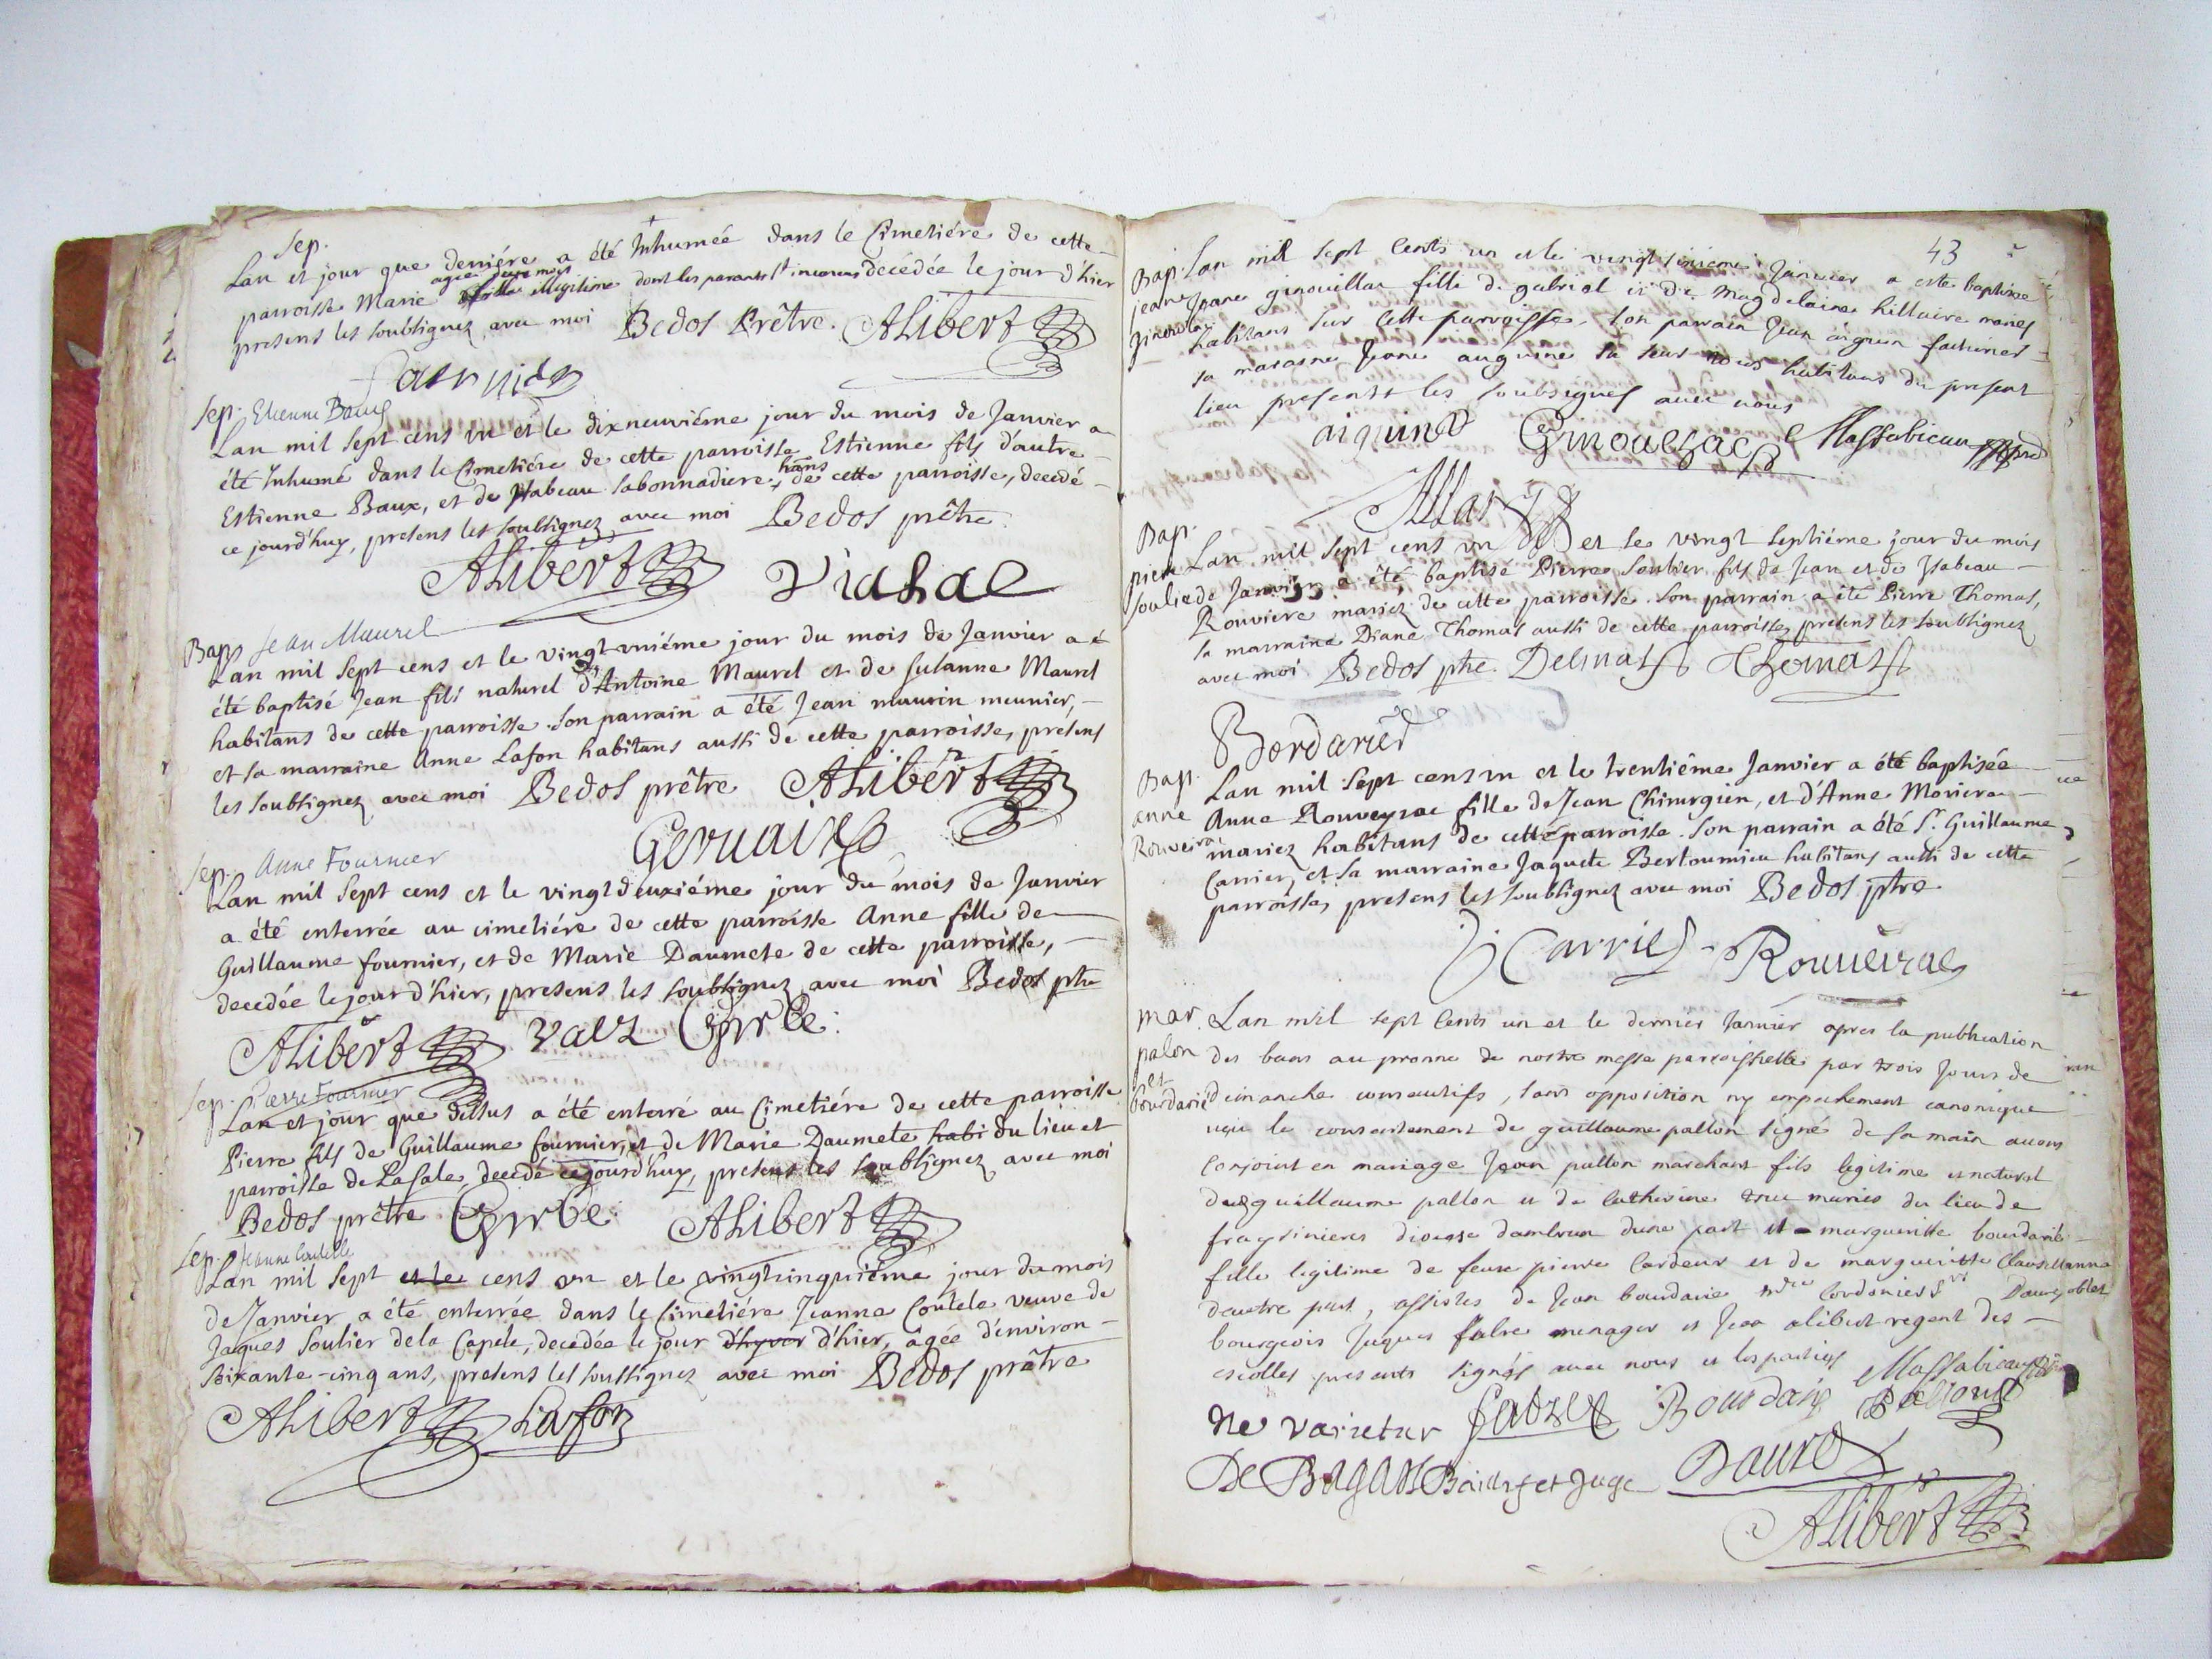 Sep.
Lan et jour que derniére a été Inhumée dans le Cimetiére de cette
parroisse Marie agée deux mois fille illegitime dont les parants st inconus decédée le jour d'hier
presens les soubsignez avec moi Bedos Prêtre. Alibert
Sep. Etienne Baux
Lan mil sept cens un et le dixneuviéme jour du mois de Janvier a
été Inhumé dans le Cimetiére de cette parroisse Estienne fils d'autre
Estienne Baux, et de Isabeau Sabonnadiere, hans de cette parroisse, decedé
ce jourd'huy, presens les soubsignez avec moi Bedos prêtre
Alibert Vialae
Bap. Jean Maurel
Lan mil sept cens et le vingt-uniéme jour du mois de Janvier a é
été baptisé Jean fils naturel d'Antoine Maurel et de Susanne Maurel
habitans de cette parroisse. Son parrain a été Jean maurin meunier,
et sa marraine Anne Lafon habitans aussi de cette parroisse, presens
les soubsignez avec moi Bedos prêtre Alibert
Gervais
Sep. Anne Fournier
Lan mil sept cens et le vingtdeuxiéme jour du mois de Janvier
a été enterrée au cimetiére de cette parroisse Anne fille de
Guillaume fournier, et de Marie Daumete de cette parroisse,
decedée le jour d'hier, presens les soubsignez avec moi Bedos ptre
Alibert Valz Girbe:
Sep. Pierre Fournier
Lan et jour que dessus a été enterré au Cimetiére de cette parroisse
Pierre fils de Guillaume fournier, et de Marie Daumete habi du lieu et
parroisse de Lasale, decedé cejourd'huy, presens les soubsignez avec moi
Bedos prêtre Girbe: Alibert
Sep. Jeanne Coutelle
Lan mil sept et le cens un et le vingtcinquiéme jour du mois
de Janvier a été enterrée dans le Cimetiére Jeanne Coutele veuve de
Jaques Soulier dela Capele, decedée le jour d'hyver d'hier, agée d'environ
soixante-cinq ans, presens les soussignez avec moi Bedos prêtre
Alibert Lafon
43
Bap. Lan mil sept cents un et le vingt sixieme Janvier a este baptisee
jeanne Jeane ginouillac fille de gabriel et de Magdelaine hillaire maries
ginoulac habitans sur cette parroisse, son parrain Jean aiguin
sa maraine Jeane auguine sa seur habitans du present
lieu presents les soubsignes avec nous
aiguin Ginouezac Massabieau
Bap.
pierre Lan mil sept cens un et le vingt septiéme jour du mois
soulie de Janvier a été baptisé Pierre Soulier fils de Jean et de Isabeau
Rouviere mariez de cette parroisse. Son parrain a été Pierre Thomas,
sa marraine Diane Thomas aussi de cette parroisse, presens les soubsignez
avec moi Bedos ptre. Delmas Thomas
Bordarier
Bap. Lan mil sept cens un et le trentiéme Janvier a été baptisée
anne Anne Rouveyrac fille de Jean Chirurgien, et d'Anne Moriere
Rouveira mariez habitans de cette parroisse. Son parrain a été Sr. Guillaume
Carrier, et sa marraine Jaquete Bertoumieu habitans aussi de cette
parroisse, presens les soubsignez avec moi Bedos ptre
Carrier Rouveirac
mar. Lan mil sept cents un et le dernier Janvier apres la publication
palon des bans au pronne de nostre messe parroissielle par trois jours de
et
bourdarie dimanche consecutifs, sans opposition ny empechement canonique
veu le consentement de guillaume pallon signé de sa main avons
conjoint en mariage Jean pallon marchant fils legitime et naturel
de guillaume pallon et de catherine maries du lieu de
fraysinieres diocese dambrun dune part et marguerite bourdarie
fille legitime de feeu pierre Cardeur et de marguerite
dautre part, assistes de Jean bourdarie Cordonier Sr.
bourgeois Jaques fabre menager et Jean alibert regent des
escolles presents signés avec nous et les parties Massabieau
ne varietur fabre Bourdarie Pallon
De Bagars Bailly et Juge Daure
Alibert